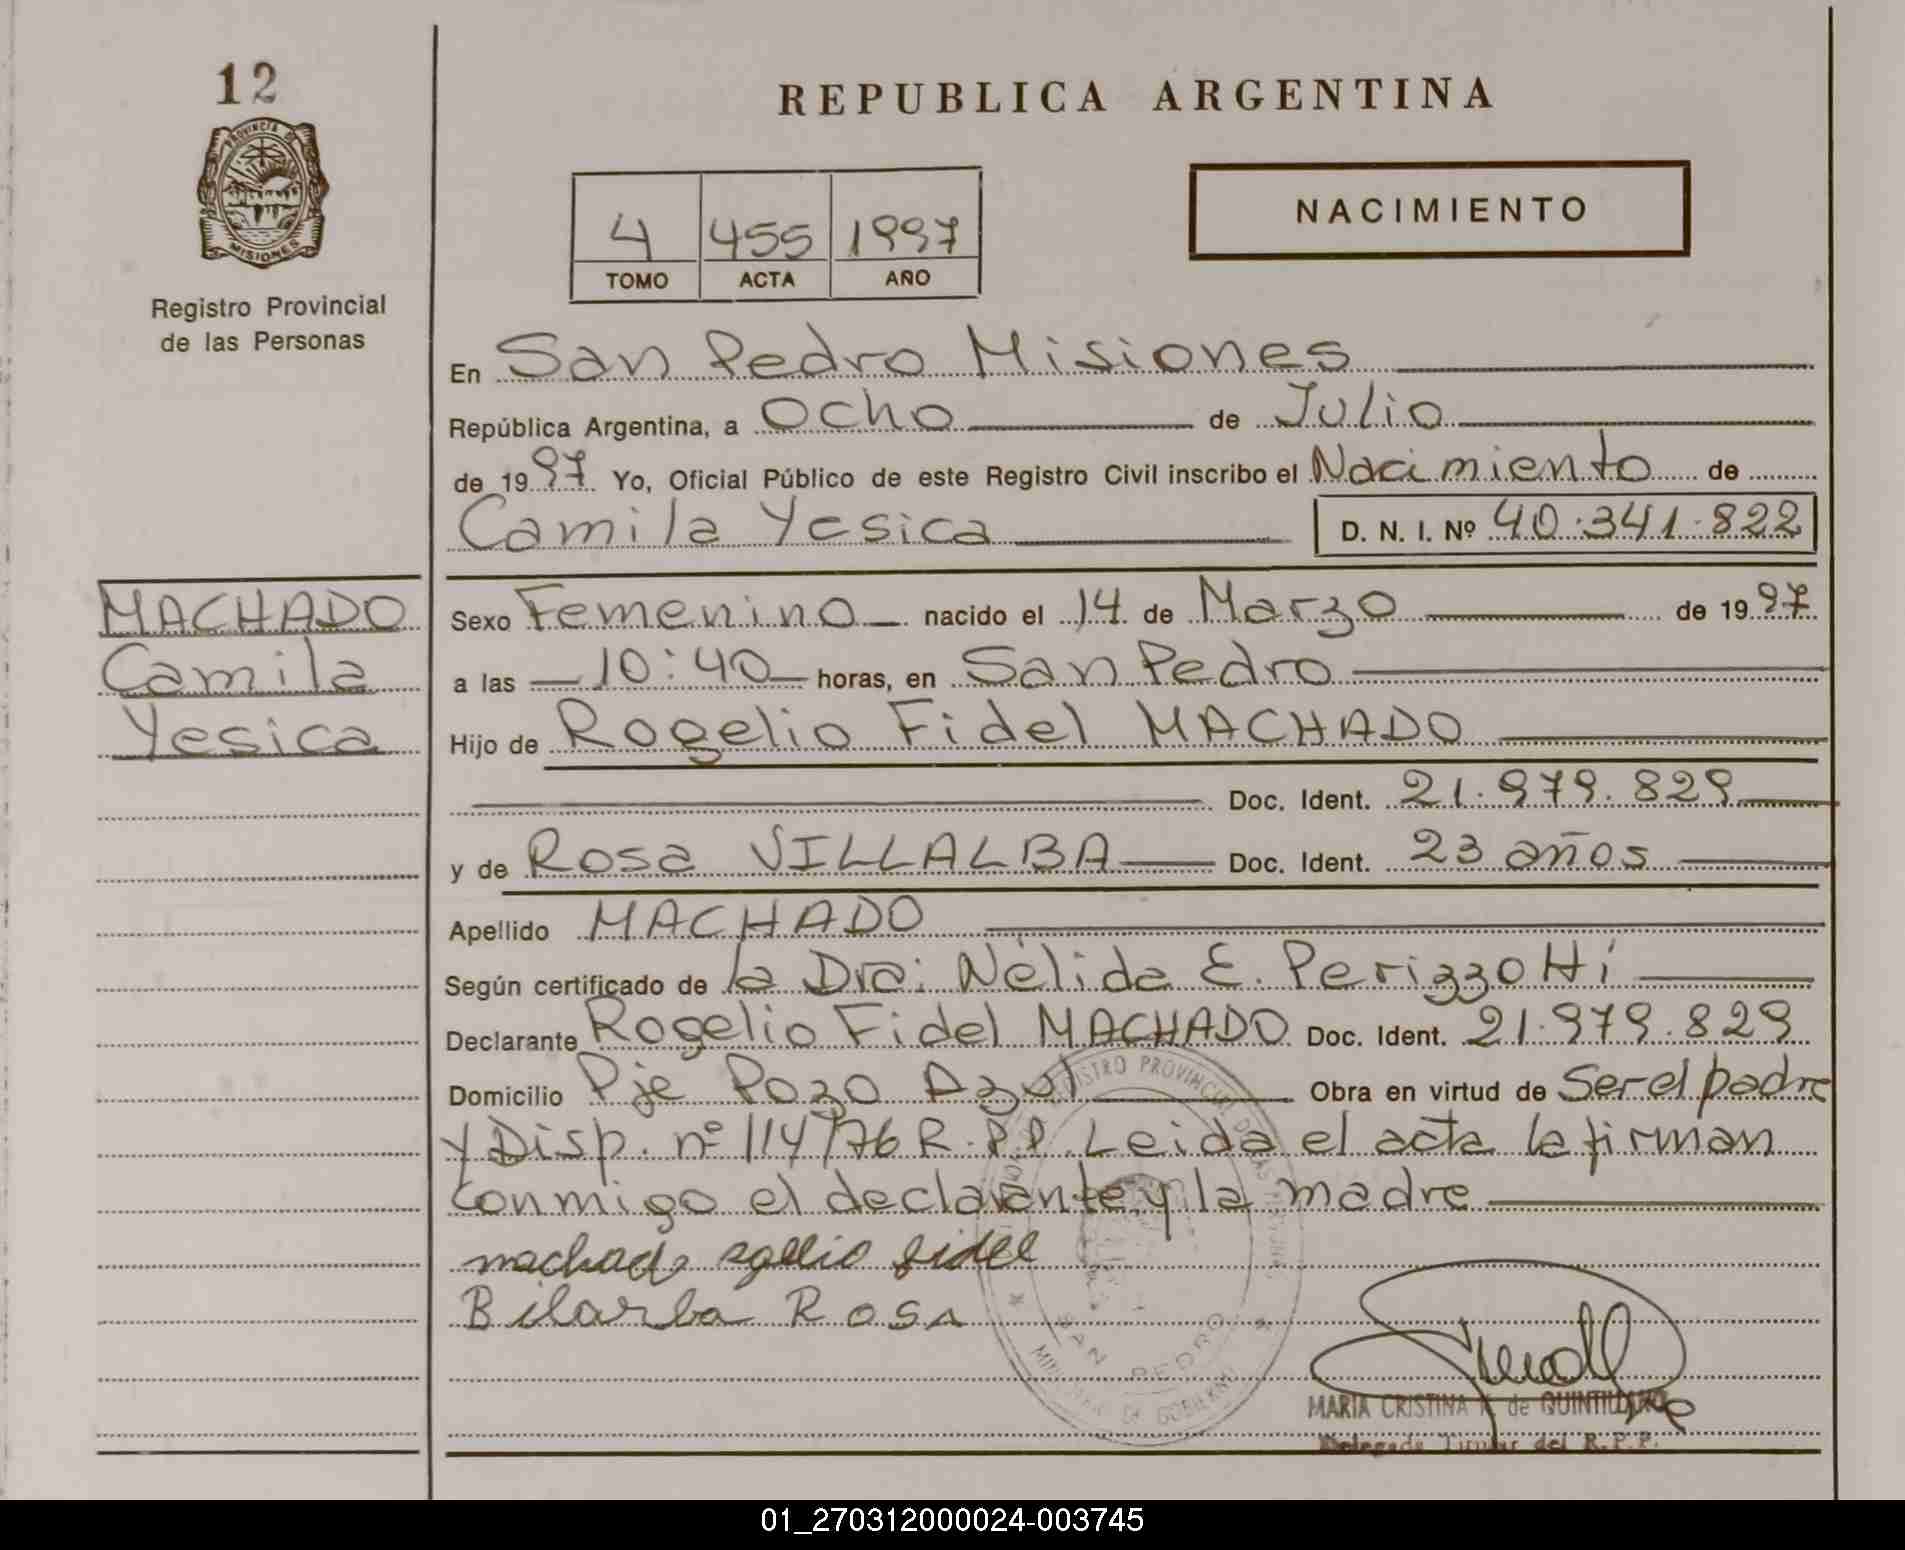 12
PROVINCIA DE
MISIONES
Registro Provincial
de las Personas
REPUBLICA ARGENTINA
4 455 1997
TOMO ACTA AÑO
NACIMIENTO
En San Pedro Misiones
República Argentina, a Ocho de Julio
de 1997 Yo, Oficial Público de este Registro Civil inscribo el Nacimiento de
Camila Yesica D. N. I. Nº 40.341.822
MACHADO
Camila
Yesica
Sexo Femenino nacido el 14 de Marzo de 1997
a las 10:40 horas, en San Pedro
Hijo de Rogelio Fidel MACHADO
Doc. Ident. 21.979.829
y de Rosa VILLALBA Doc. Ident. 23 años
Apellido MACHADO
Según certificado de la Dra: Nélida E. Perizzotti
Declarante Rogelio Fidel MACHADO Doc. Ident. 21.979.829
Domicilio Pje Pozo Azul Obra en virtud de Ser el padre
y Disp. nº 114/76 R.P.P. Leida el acta la firman
conmigo el declarante y la madre
machado rogelio fidel
Bilarba Rosa
REGISTRO PROVINCIAL DE LAS PERSONAS
SAN PEDRO
MINISTERIO DE GOBIERNO
MARIA CRISTINA de QUINTILLANO
Delegada Titular del R.P.P.
01_270312000024-003745